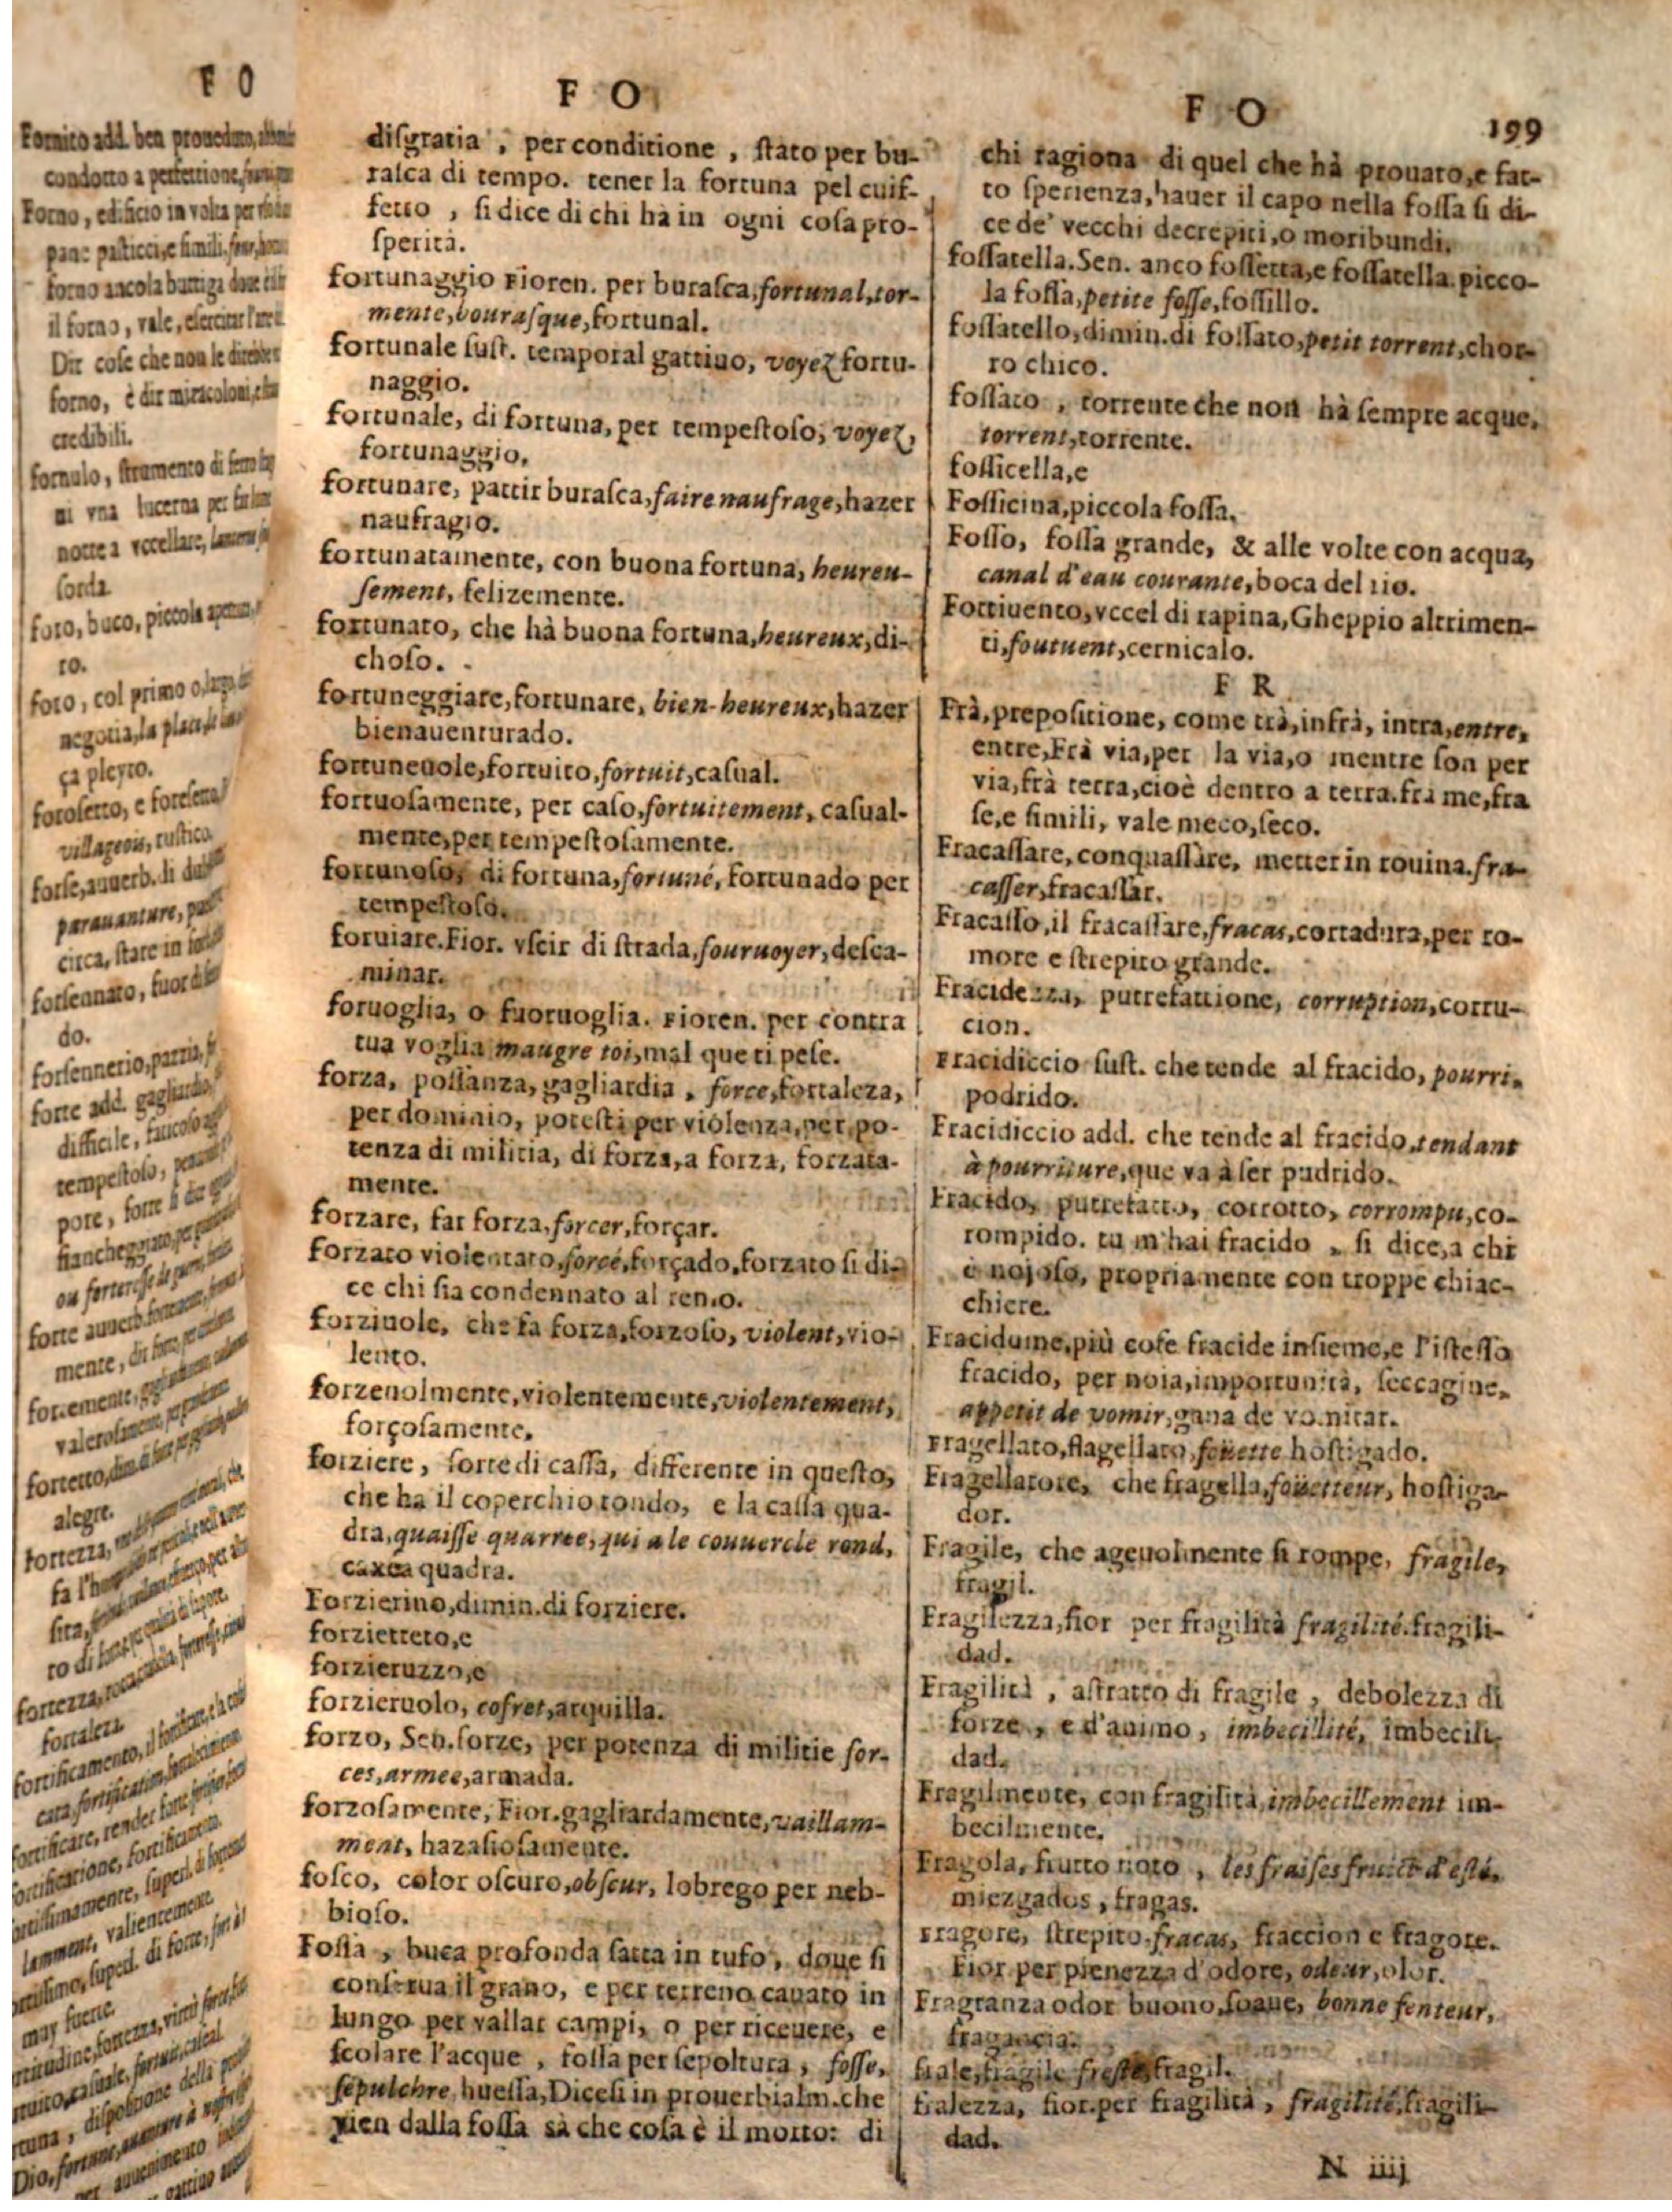 F O
Fornito add. ben proueduto,
condotto a perfettione,
Forno, edificio in volta per
pane pasticci,e simili,
forno ancola bottiga doue
il forno, vale, esercitar l'arte
Dir cose che non le direbbe
forno, è dir miracoloni,
credibili.
fornulo, strumento di ferro
ni vna lucerna per far lume
notte a vccellare,
sorda.
foro, buco, piccola
ro.
foro, col primo o,
negotia,la place,
ça pleyto.
forosetto, e foresetta
villageois, rustico.
forse,auuerb. di
parauanture,
circa, stare in
forsennato, fuor di
do.
forsennerio,pazzia,
forte add. gagliardo,
difficile,
tempestoso,
pore, forte si dice
forte auuerb.
mente,
alegre.
fortezza,
fortaleza.
fortificamento,
fortificare, render forte
may fuerte.
F O
disgratia, per conditione, stato per bu-
rasca di tempo. tener la fortuna pel cuif-
fetto, si dice di chi ha in ogni cosa pro-
sperità.
fortunaggio Fioren. per burasca,fortunal,tor-
mente,bourasque,fortunal.
fortunale sust. temporal gattiuo, voyez fortu-
naggio.
fortunale, di fortuna, per tempestoso, voyez,
fortunaggio.
fortunare, pattir burasca,faire naufrage,hazer
naufragio.
fortunatamente, con buona fortuna, heureu-
sement, felizemente.
fortunato, che hà buona fortuna,heureux,di-
choso.
fortuneggiare,fortunare, bien-heureux,hazer
bienauenturado.
fortuneuole,fortuito,fortuit,casual.
fortuosamente, per caso,fortuitement, casual-
mente,per tempestosamente.
fortunoso, di fortuna,fortuné, fortunado per
tempestoso.
foruiare.Fior. vscir di strada,fouruoyer,desca-
minar.
foruoglia, o fuoruoglia. Fioren. per contra
tua voglia maugre toi,mal que ti pese.
forza, possanza,gagliardia, force,fortaleza,
per dominio, potestà per violenza,per po-
tenza di militia, di forza,a forza, forzata-
mente.
forzare, far forza,forcer,forçar.
forzato violentato,forcé,forçado,forzato si di-
ce chi sia condennato al remo.
forziuole, che fa forza,forzoso, violent,vio-
lento.
forzeuolmente,violentemente,violentement,
forçosamente.
forziere, sorte di cassa, differente in questo,
che ha il coperchio tondo, e la cassa qua-
dra,quaisse quarree,qui a le couuercle rond,
caxea quadra.
Forzierino,dimin.di forziere.
forzietteto,e
forzieruzzo,e
forzieruolo, cofret,arquilla.
forzo, Sen.forze, per potenza di militie for-
ces,armee,armada.
forzosamente, Fior.gagliardamente,vaillam-
ment, hazañosamente.
fosco, color oscuro,obscur, lobrego per neb-
bioso.
Fossa, buca profonda fatta in tufo, doue si
conserua il grano, e per terreno cauato in
lungo per vallar campi, o per riceuere, e
scolare l'acque, fossa per sepoltura, fosse,
sepulchre,huessa,Dicesi in prouerbialm.che
vien dalla fossa sà che cosa è il morto: di
F O
199
chi ragiona di quel che hà prouato,e fat-
to sperienza,hauer il capo nella fossa si di-
ce de' vecchi decrepiti,o moribundi.
fossatella.Sen. anco fossetta,e fossatella.picco-
la fossa,petite fosse,fossillo.
fossatello,dimin.di fossato,petit torrent,chor-
ro chico.
fossato, torrente che non hà sempre acque,
torrent,torrente.
fossicella,e
Fossicina,piccola fossa.
Fosso, fossa grande, & alle volte con acqua,
canal d'eau courante,boca del rio.
Fottiuento,vccel di rapina,Gheppio altrimen-
ti,foutuent,cernicalo.
F R
Frà,prepositione, come trà,infrà, intra,entre,
entre,Frà via,per la via,o mentre son per
via,frà terra,cioè dentro a terra.fra me,fra
se,e simili, vale meco,seco.
Fracassare,conquassare, metter in rouina.fra-
casser,fracassar.
Fracasso,il fracassare,fracas,cortadura,per ro-
more e strepito grande.
Fracidezza, putrefattione, corruption,corru-
cion.
Fracidiccio sust. che tende al fracido, pourri,
podrido.
Fracidiccio add. che tende al fracido,tendant
à pourriture,que va à ser pudrido.
Fracido, putrefatto, corrotto, corrompu,co-
rompido. tu m'hai fracido, si dice,a chi
è nojoso, propriamente con troppe chiac-
chiere.
Fracidume,più cose fracide insieme,e l'istesso
fracido, per noia,importunità, seccagine,
appetit de vomir,gana de vomitar.
Fragellato,flagellato,foüette hostigado.
Fragellatore, che fragella,foüetteur, hostiga-
dor.
Fragile, che ageuolmente si rompe, fragile,
fragil.
Fragilezza,fior per fragilità fragilité.fragili-
dad.
Fragilità, astratto di fragile, debolezza di
forze, e d'animo, imbecillité, imbecili-
dad.
Fragilmente, con fragilità,imbecillement im-
becilmente.
Fragola, frutto noto, les fraises fruict d'esté,
miezgados, fragas.
Fragore, strepito.fracas, fraccion e fragore.
Fior per pienezza d'odore, odeur,olor.
Fragranza odor buono,soaue, bonne senteur,
fragancia.
frale,fragile fresle,fragil.
fralezza, fior.per fragilità, fragilité,fragili-
dad.
N iiij